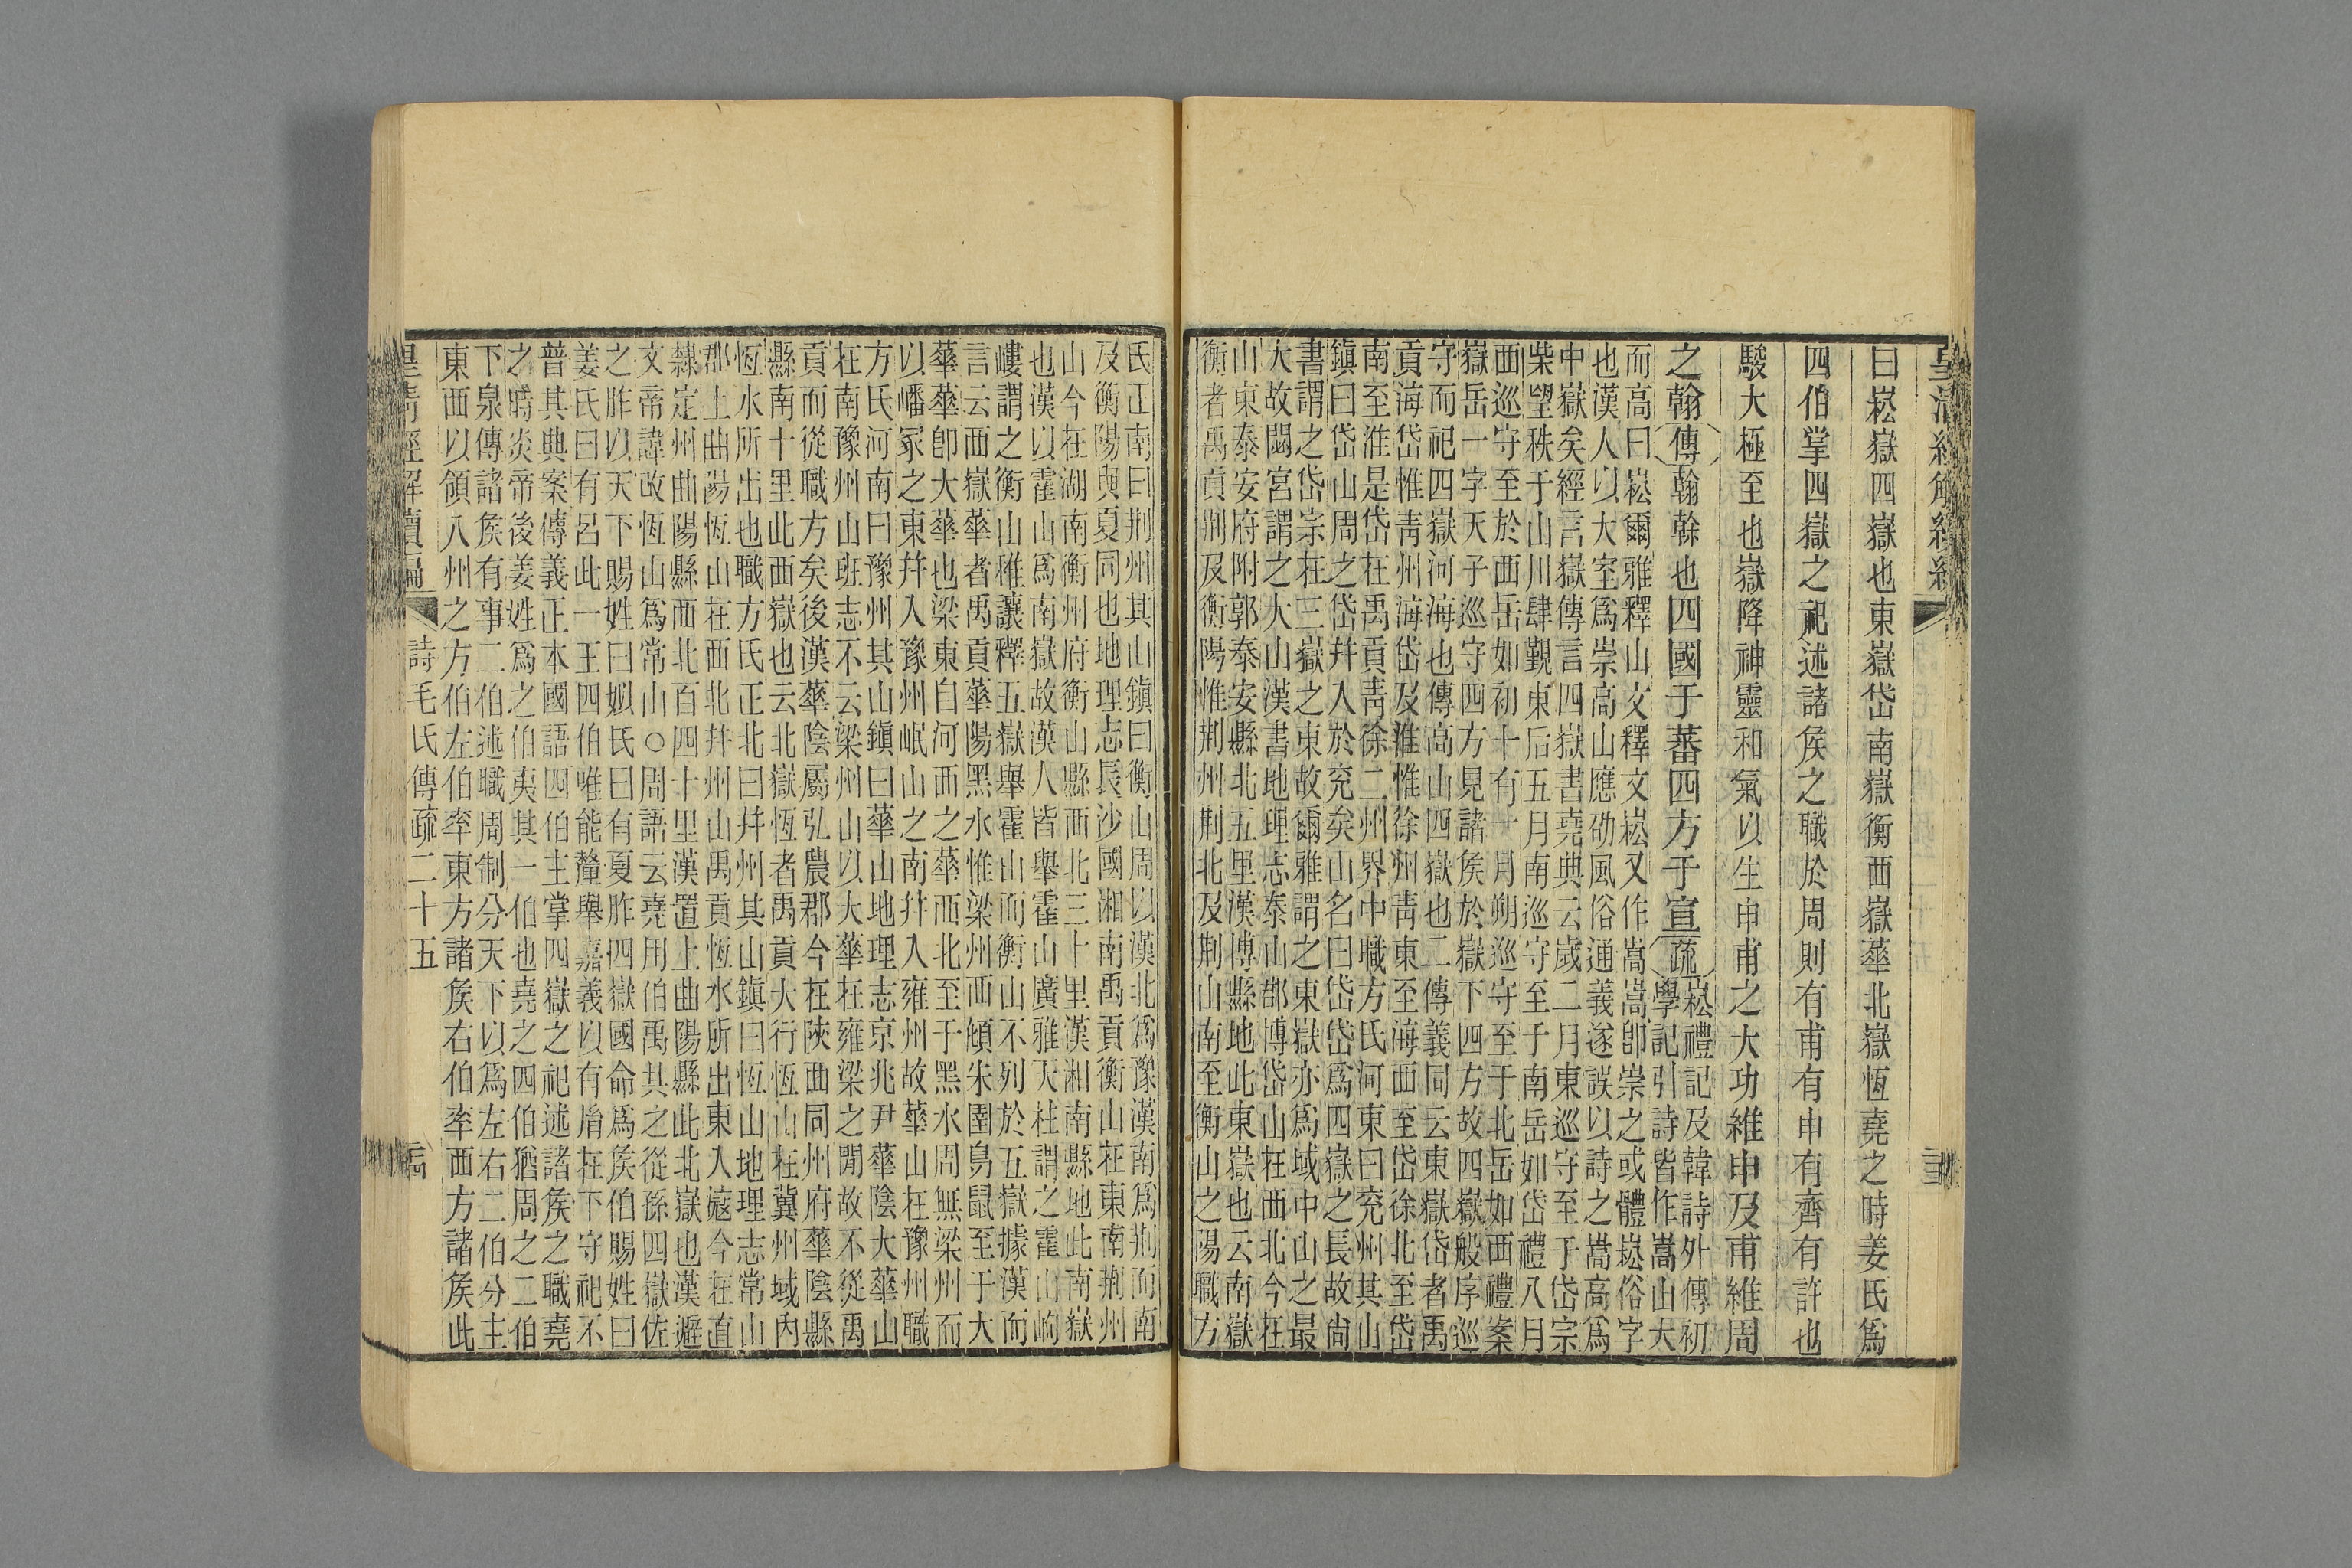 皇清經解續編
曰崧嶽四嶽也東嶽岱南嶽衡西嶽華北嶽恆堯之時姜氏爲
四伯掌四嶽之祀述諸矦之職於周則有甫有申有齊有許也
駿大極至也嶽降神靈和氣以生申甫之大功維申及甫維周
之翰傳翰榦也四國于蕃四方于宣疏崧禮記及韓詩外傳初
學記引詩皆作嵩山大
而高曰崧爾雅釋山文釋文崧又作嵩嵩卽崇之或體崧俗字
也漢人以大室爲崇高山應劭風俗通義遂誤以詩之嵩高爲
中嶽矣經言嶽傳言四嶽書堯典云歲二月東巡守至于岱宗
柴望秩于山川肆覲東后五月南巡守至于南岳如岱禮八月
西巡守至於西岳如初十有一月朔巡守至于北岳如西禮案
嶽岳一字天子巡守四方見諸矦於嶽下四方故四嶽般序巡
守而祀四嶽河海也傳高山四嶽也二傳義同云東嶽岱者禹
貢海岱惟青州海岱及淮惟徐州青東至海西至岱徐北至岱
南至淮是岱在禹貢青徐二州界中職方氏河東曰兖州其山
鎭曰岱山周之岱幷入於兖矣山名曰岱岱爲四嶽之長故尙
書謂之岱宗在三嶽之東故爾雅謂之東嶽亦爲域中山之最
大故閟宮謂之大山漢書地理志泰山郡博岱山在西北今在
山東泰安府附郭泰安縣北五里漢博縣地此東嶽也云南嶽
衡者禹貢荆及衡陽惟荆州荆北及荆山南至衡山之陽職方
氏正南曰荆州其山鎭曰衡山周以漢北爲豫漢南爲荆而南
及衡陽與夏同也地理志長沙國湘南禹貢衡山在東南荆州
山今在湖南衡州府衡山縣西北三十里漢湘南縣地此南嶽
也漢以霍山爲南嶽故漢人皆舉霍山廣雅天柱謂之霍山岣
嶁謂之衡山雅讓釋五嶽舉霍山而衡山不列於五嶽據漢而
言云西嶽華者禹貢華陽黑水惟梁州西傾朱圉鳥鼠至于大
華華卽大華也梁東自河西之華西北至于黑水周無梁州而
以嶓冢之東幷入豫州岷山之南幷入雍州故華山在豫州職
方氏河南曰豫州其山鎭曰華山地理志京兆尹華陰大華山
在南豫州山班志不云梁州山以大華在雍梁之閒故不從禹
貢而從職方矣後漢華陰屬弘農郡今在陝西同州府華陰縣
縣南十里此西嶽也云北嶽恆者禹貢大行恆山在冀州域內
恆水所出也職方氏正北曰幷州其山鎭曰恆山地理志常山
郡上曲陽恆山在西北幷州山禹貢恆水所出東入滱今在直
隸定州曲陽縣西北百四十里漢置上曲陽縣此北嶽也漢避
文帝諱改恆山爲常山○周語云堯用伯禹其之從孫四嶽佐
之胙以天下賜姓曰姒氏曰有夏胙四嶽國命爲矦伯賜姓曰
姜氏曰有呂此一王四伯唯能釐舉嘉義以有胤在下守祀不
替其典案傳義正本國語四伯主掌四嶽之祀述諸矦之職堯
之時炎帝後姜姓爲之伯夷其一伯也堯之四伯猶周之二伯
下泉傳諸矦有事二伯述職周制分天下以爲左右二伯分主
東西以領八州之方伯左伯率東方諸矦右伯率西方諸矦此
皇清經解續編　詩毛氏傳疏二十五